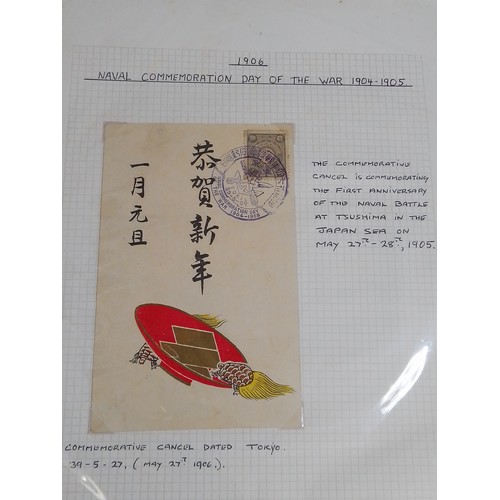 1906
NAVAL COMMEMORATION DAY OF THE WAR 1904-1905
恭賀新年
一月元旦
THE COMMEMORATIVE
CANCEL IS COMMEMORATING
THE FIRST ANNIVERSARY
OF THE NAVAL BATTLE
AT TSUSHIMA IN THE
JAPAN SEA ON
MAY 27TH-28TH, 1905.
COMMEMORATIVE CANCEL DATED TOKYO.
39-5-27, (MAY 27TH 1906.).